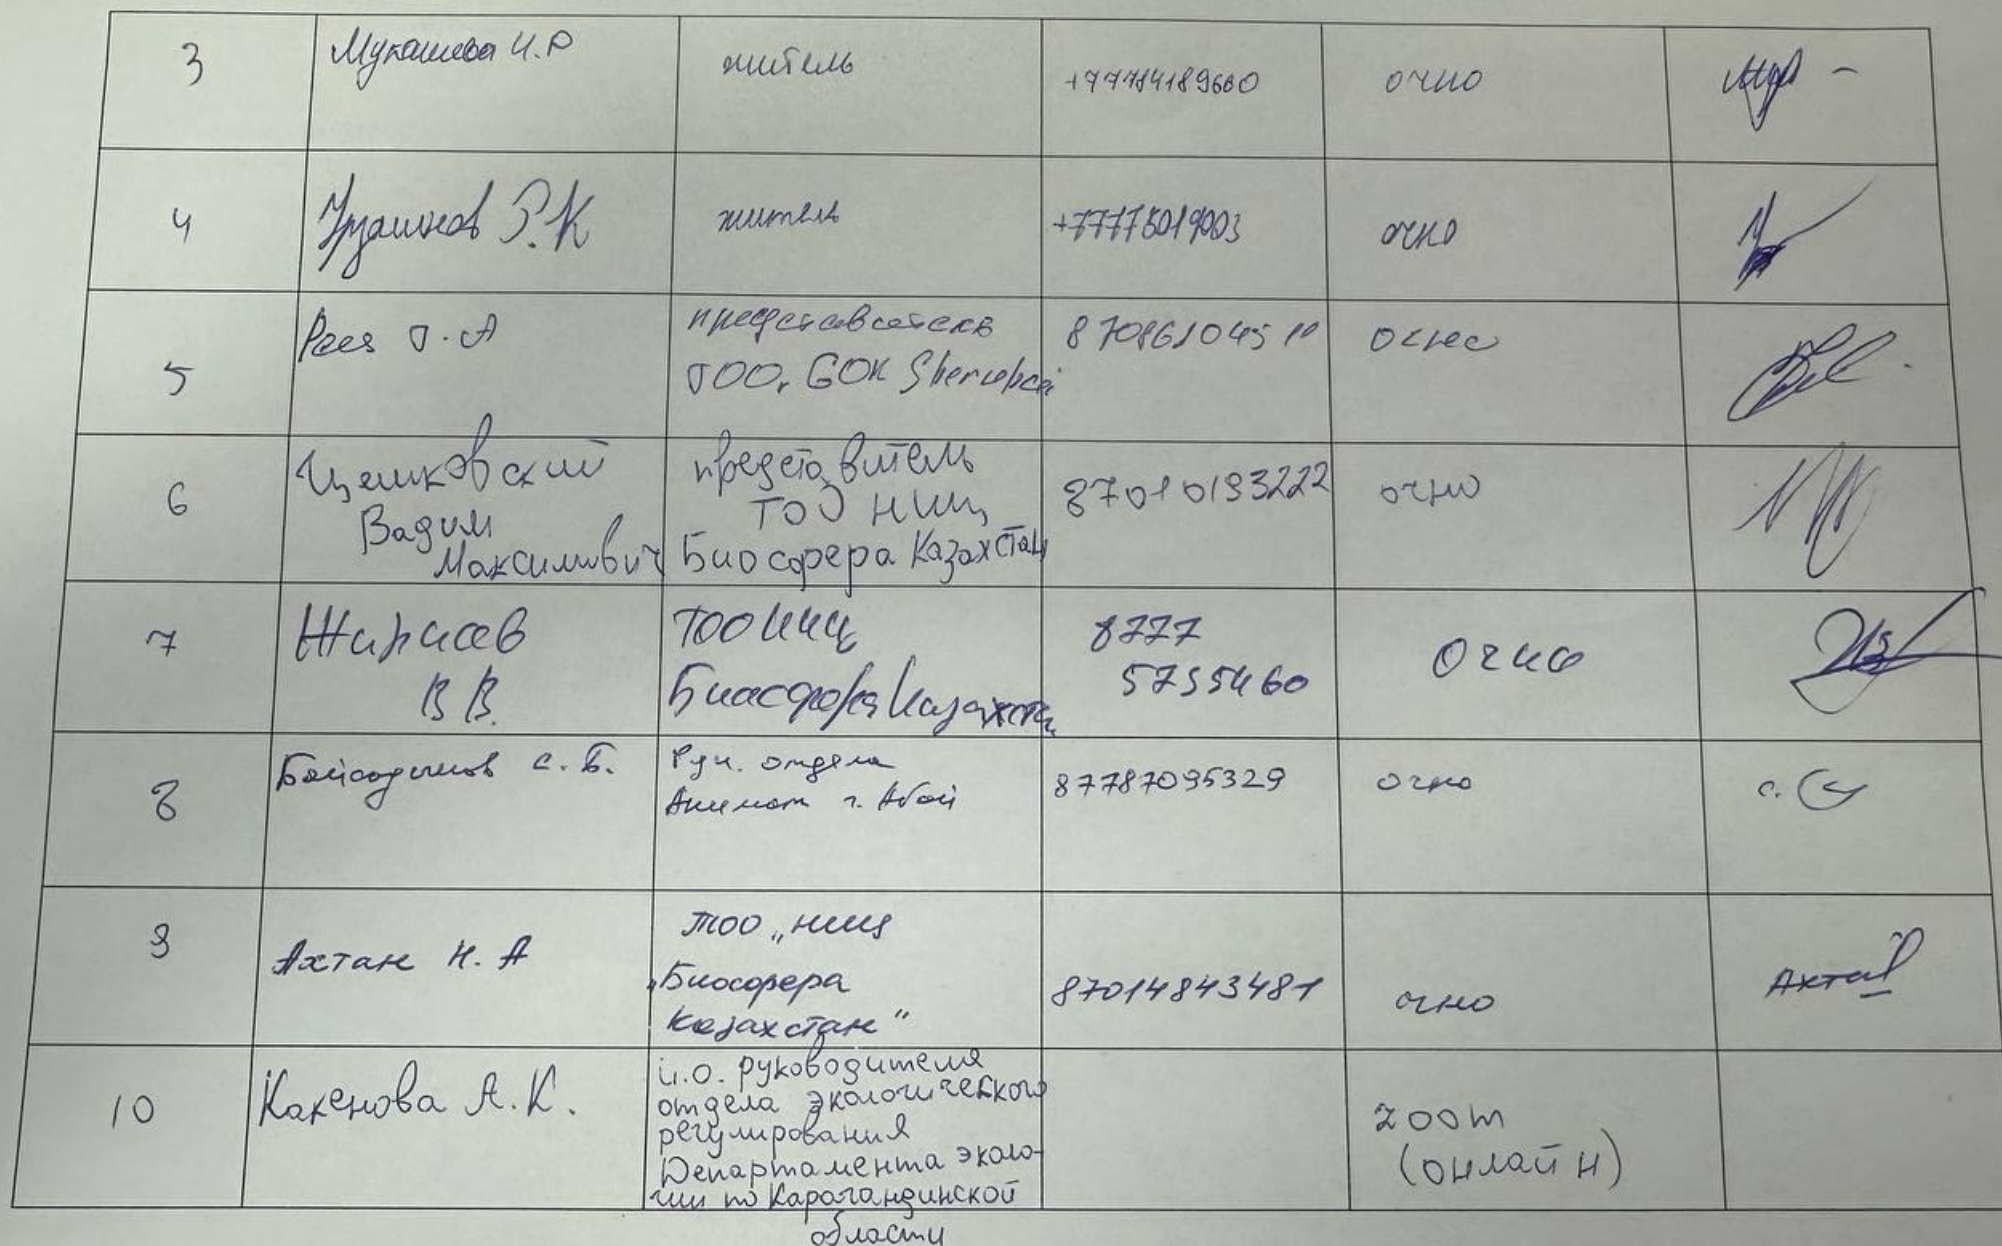 3
Мукашева И.Р
житель
очно
4
Р.К
житель
очно
5
Т.А
представитель
ТОО, GOK
очно
6
Цешковский
Вадим
Максимович
представитель
ТОО НИЦ
Биосфера Казахстан
87010193222
очно
7
В В.
ТОО НИЦ
Биосфера Казахстан
8777
5755460
очно
8
С. Б.
Рук. отдела
Акимат г. Абай
87787095329
очно
9
Ахтан Н. А
ТОО „НИЦ
„Биосфера
Казахстан"
87014843481
очно
10
Какенова А.К.
и.о. руководителя
отдела экологического
регулирования
Департамента эколо-
гии по Карагандинской
области
zoom
(онлайн)